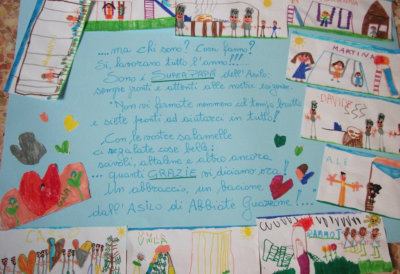 ....ma chi sono? Cosa fanno?
Si, lavorano tutto l'anno!!!
Sono i SUPER PAPÀ dell'Asilo:
sempre pronti e attenti alle nostre esigenze.
"Non vi fermate nemmeno col tempo brutto
e siete pronti ad aiutarci in tutto!
Con le vostre salamelle
ci regalate cose belle:
tavoli, altalene e altro ancora
.... quanti GRAZIE vi diciamo ora!
Un abbraccio, un bacione,
dall'Asilo di Abbiate Guazzone!...
MARTINA
DAVIDE
ALE